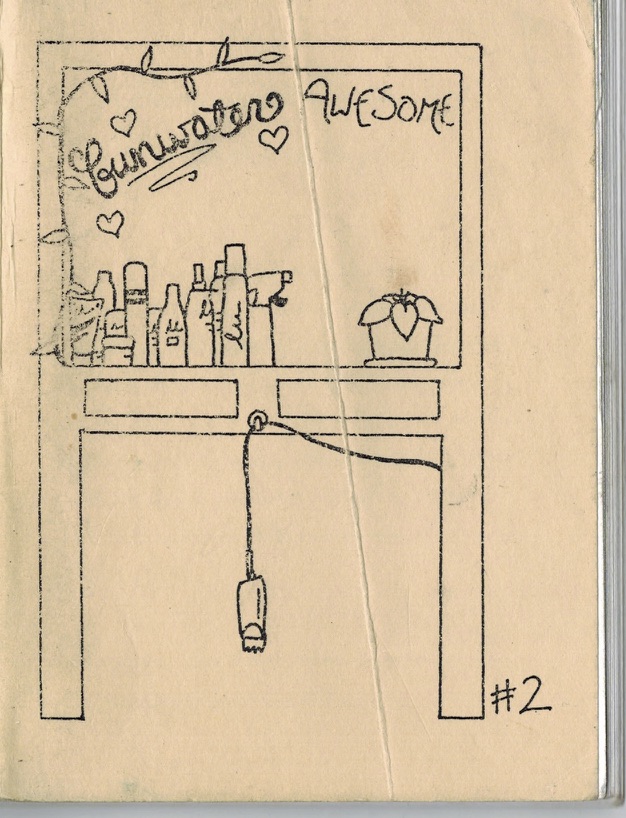 Gunwater
AWESOME
#2